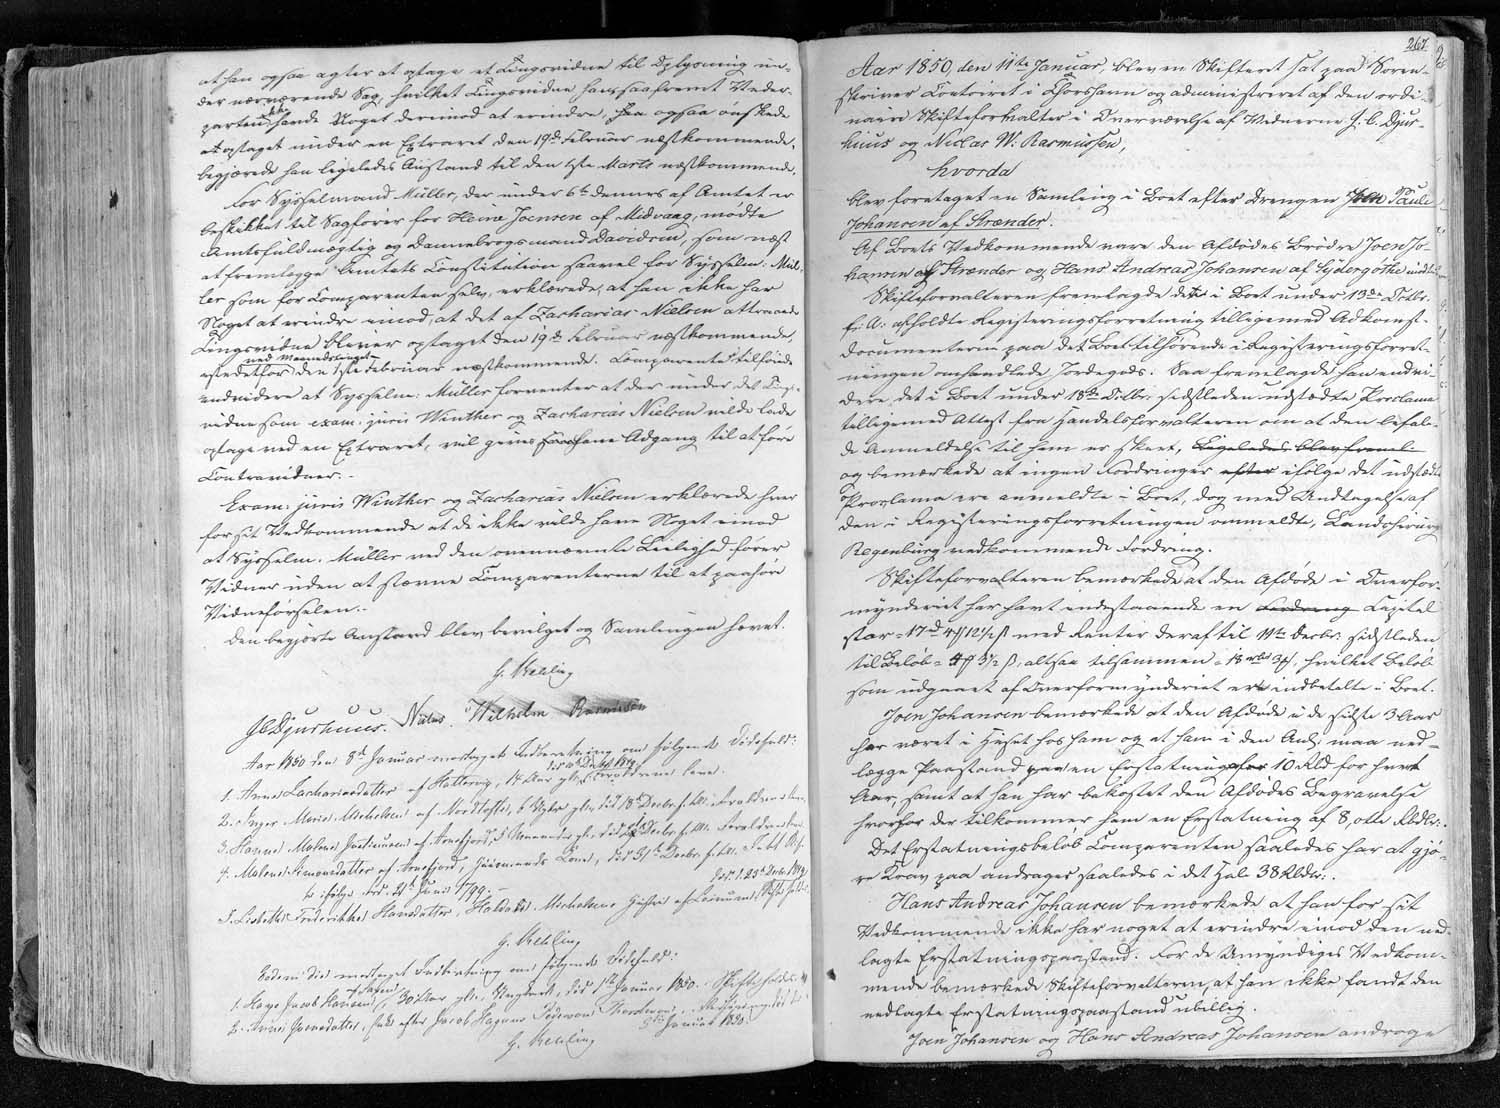 at han ogsaa agter at optage et Tingsvidne til Oplysning un-
der nærværende Sag, hvilket Tingsvidne han saafremt Veder-
parten ikke havde Noget derimod at erindre, ogsaa ønskede
optaget under en Extraret den 19de Februar næstkommende,
begjærede han ligeledes Anstand til den 1ste Marts næstkommende.
For Sysselmand Müller, der under 6te dennes af Amtet er
beskikket til Sagfører for Heine Joensen af Midvaag, mødte
Amtsfuldmægtig og Dannebrogsmand Davidsen, som næst
at fremlægge Amtets Constitution saavel for Sysselm: Mül-
ler som for Comparenten selv, erklærede, at han ikke har
Noget at erindre imod, at det af Zacharias Nielsen attraaede
Tingsvidne bliver optaget den 19de Februar næstkommende,
ved Maanedstinget
istedetfor den 1ste Februar næstkommende. Comparenten tilføiede
endvidere at Sysselm: Müller formener at der under det Tings-
vidne som exam: juris Winther og Zacharias Nielsen vilde lade
optage ved en Extraret, vil gives Adgang til at føre
Contravidner.
Exam: juris Winther og Zacharias Nielsen erklærede hver
for sit Vedkommende at de ikke vilde have Noget imod
at Sysselm. Müller ved den ovennævnte Leilighed fører
Vidner uden at stævne Comparenterne til at paahøre
Vidneførselen.
Den begjærte Anstand blev bevilget og Samlingen hævet.
G. Vekling
JCDjurhuus. Niclas Wilhelm Rasmussen
Aar 1850 den 8de Januar modtaget Indberetning om følgende Dødsfald:
1. Anne Zachariasdatter af Hattervig, 14 Aar gl., Forældrene leve.
2. Inger Marie Michelsen af Nordtofte, 6 Uger gl., død 18de Decbr. f.A. Forældrene leve.
3. Hanne Malene Justinusen af Arnefjord, 5 Maaneder gl., død Decbr. f.A. Forældrene leve.
4. Malene Simonsdatter af Arnefjord, Kone, død 31te Decbr. f.A.
ifølge 21de Juni 1799.
død d. 23de Decbr. 1849
5. Lisbeth Frederikke Hansdatter, Michelsens Hustru af
G. Vekling
Eodem die modtaget Indberetning om følgende Dødsfald:
1. Haye Jacob Hansen, 30 Aar gl., Ungkarl, død 1ste Januar 1850.
2. Anne Joensdatter, Enke efter Jacob
Januar 1850.
G. Vekling
267.
Aar 1850, den 11te Januar, blev en Skifteret sat paa Soren-
skriver Contoiret i Thorshavn og administreret af den ordi-
naire Skifteforvalter i Overværelse af Vidnerne J. C. Djur-
huus og Niclas W. Rasmussen,
hvorda
blev foretaget en Samling i Boet efter Drengen Joen Pauli
Johansen af Strænder.
Af Boets Vedkommende vare den Afdødes Brødre Joen Jo-
hansen af Strænder og Hans Andreas Johansen af Sydergøthe mødte
Skifteforvalteren fremlagde det i Boet under 13de Octbr.
f: A: afholdte Registreringsforretning tilligemed Adkomst-
documenterne paa det Boet tilhørende i Registreringsforret-
ningen omhandlede Jordegods. Saa fremlagde han endvi-
dere det i Boet under 18de Octbr. sidstleden udstædte Proclama
tilligemed Attest fra Handelsforvalteren om at den befal-
de Anmeldelse til ham er skeet, Ligeledes blev freml-
og bemærkede at ingen Fordringer efter ifølge det udstædte
Proclama ere anmeldte i Boet, dog med Undtagelse af
den i Registreringsforretningen ommeldte, Landchirurg
Regenburg vedkommende Fordring.
Skifteforvalteren bemærkede at den Afdøde i Overfor-
mynderiet har havt indestaaende en Fordring Capital
stor = 17rd 4 12½ ß med Renter deraf til 11te Decbr: sidstleden
til Beløb = 4 3½ ß, altsaa tilsammen = 18 rbd 3, hvilket Beløb
som udgaaet af Overformynderiet er indbetalte i Boet.
Joen Johansen bemærkede at den Afdøde i de sidste 3 Aar
har været i Huset hos ham og at han i den Anl. maa ned-
lægge Paastand paa en Erstatning af 10 Rbd for hvert
Aar, samt at han har bekostet den Afdødes Begravelse
hvorfor der tilkommer ham en Erstatning af 8, otte Rbdlr.
Det Erstatningsbeløb Comparenten saaledes har at gjø-
re Krav paa andrager saaledes i det Hele 38 Rbdlr.
Hans Andreas Johansen bemærkede at han for sit
Vedkommende ikke har noget at erindre imod den ned-
lagte Erstatningspaastand. For de Umyndiges Vedkom-
mende bemærkede Skifteforvalteren, at han ikke fandt den
nedlagte Erstatningspaastand ubillig.
Joen Johansen og Hans Andreas Johansen androge